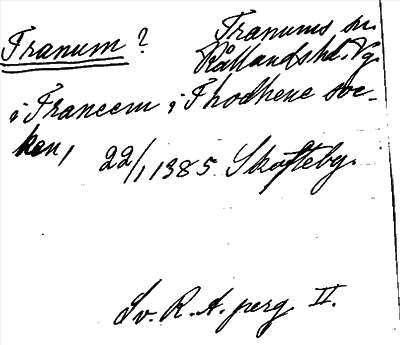 Tranum ? Tranums sn.
Kållands hd. Vg.
i Traneem i Thodhene soc-
ken, 22/1 1385 Skofteby.
Sv. R. A. perg II.